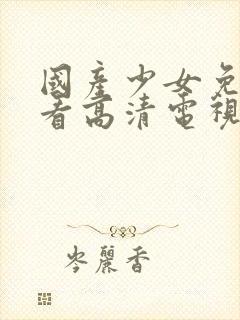 國產少女免
看高清電視
岑麗香